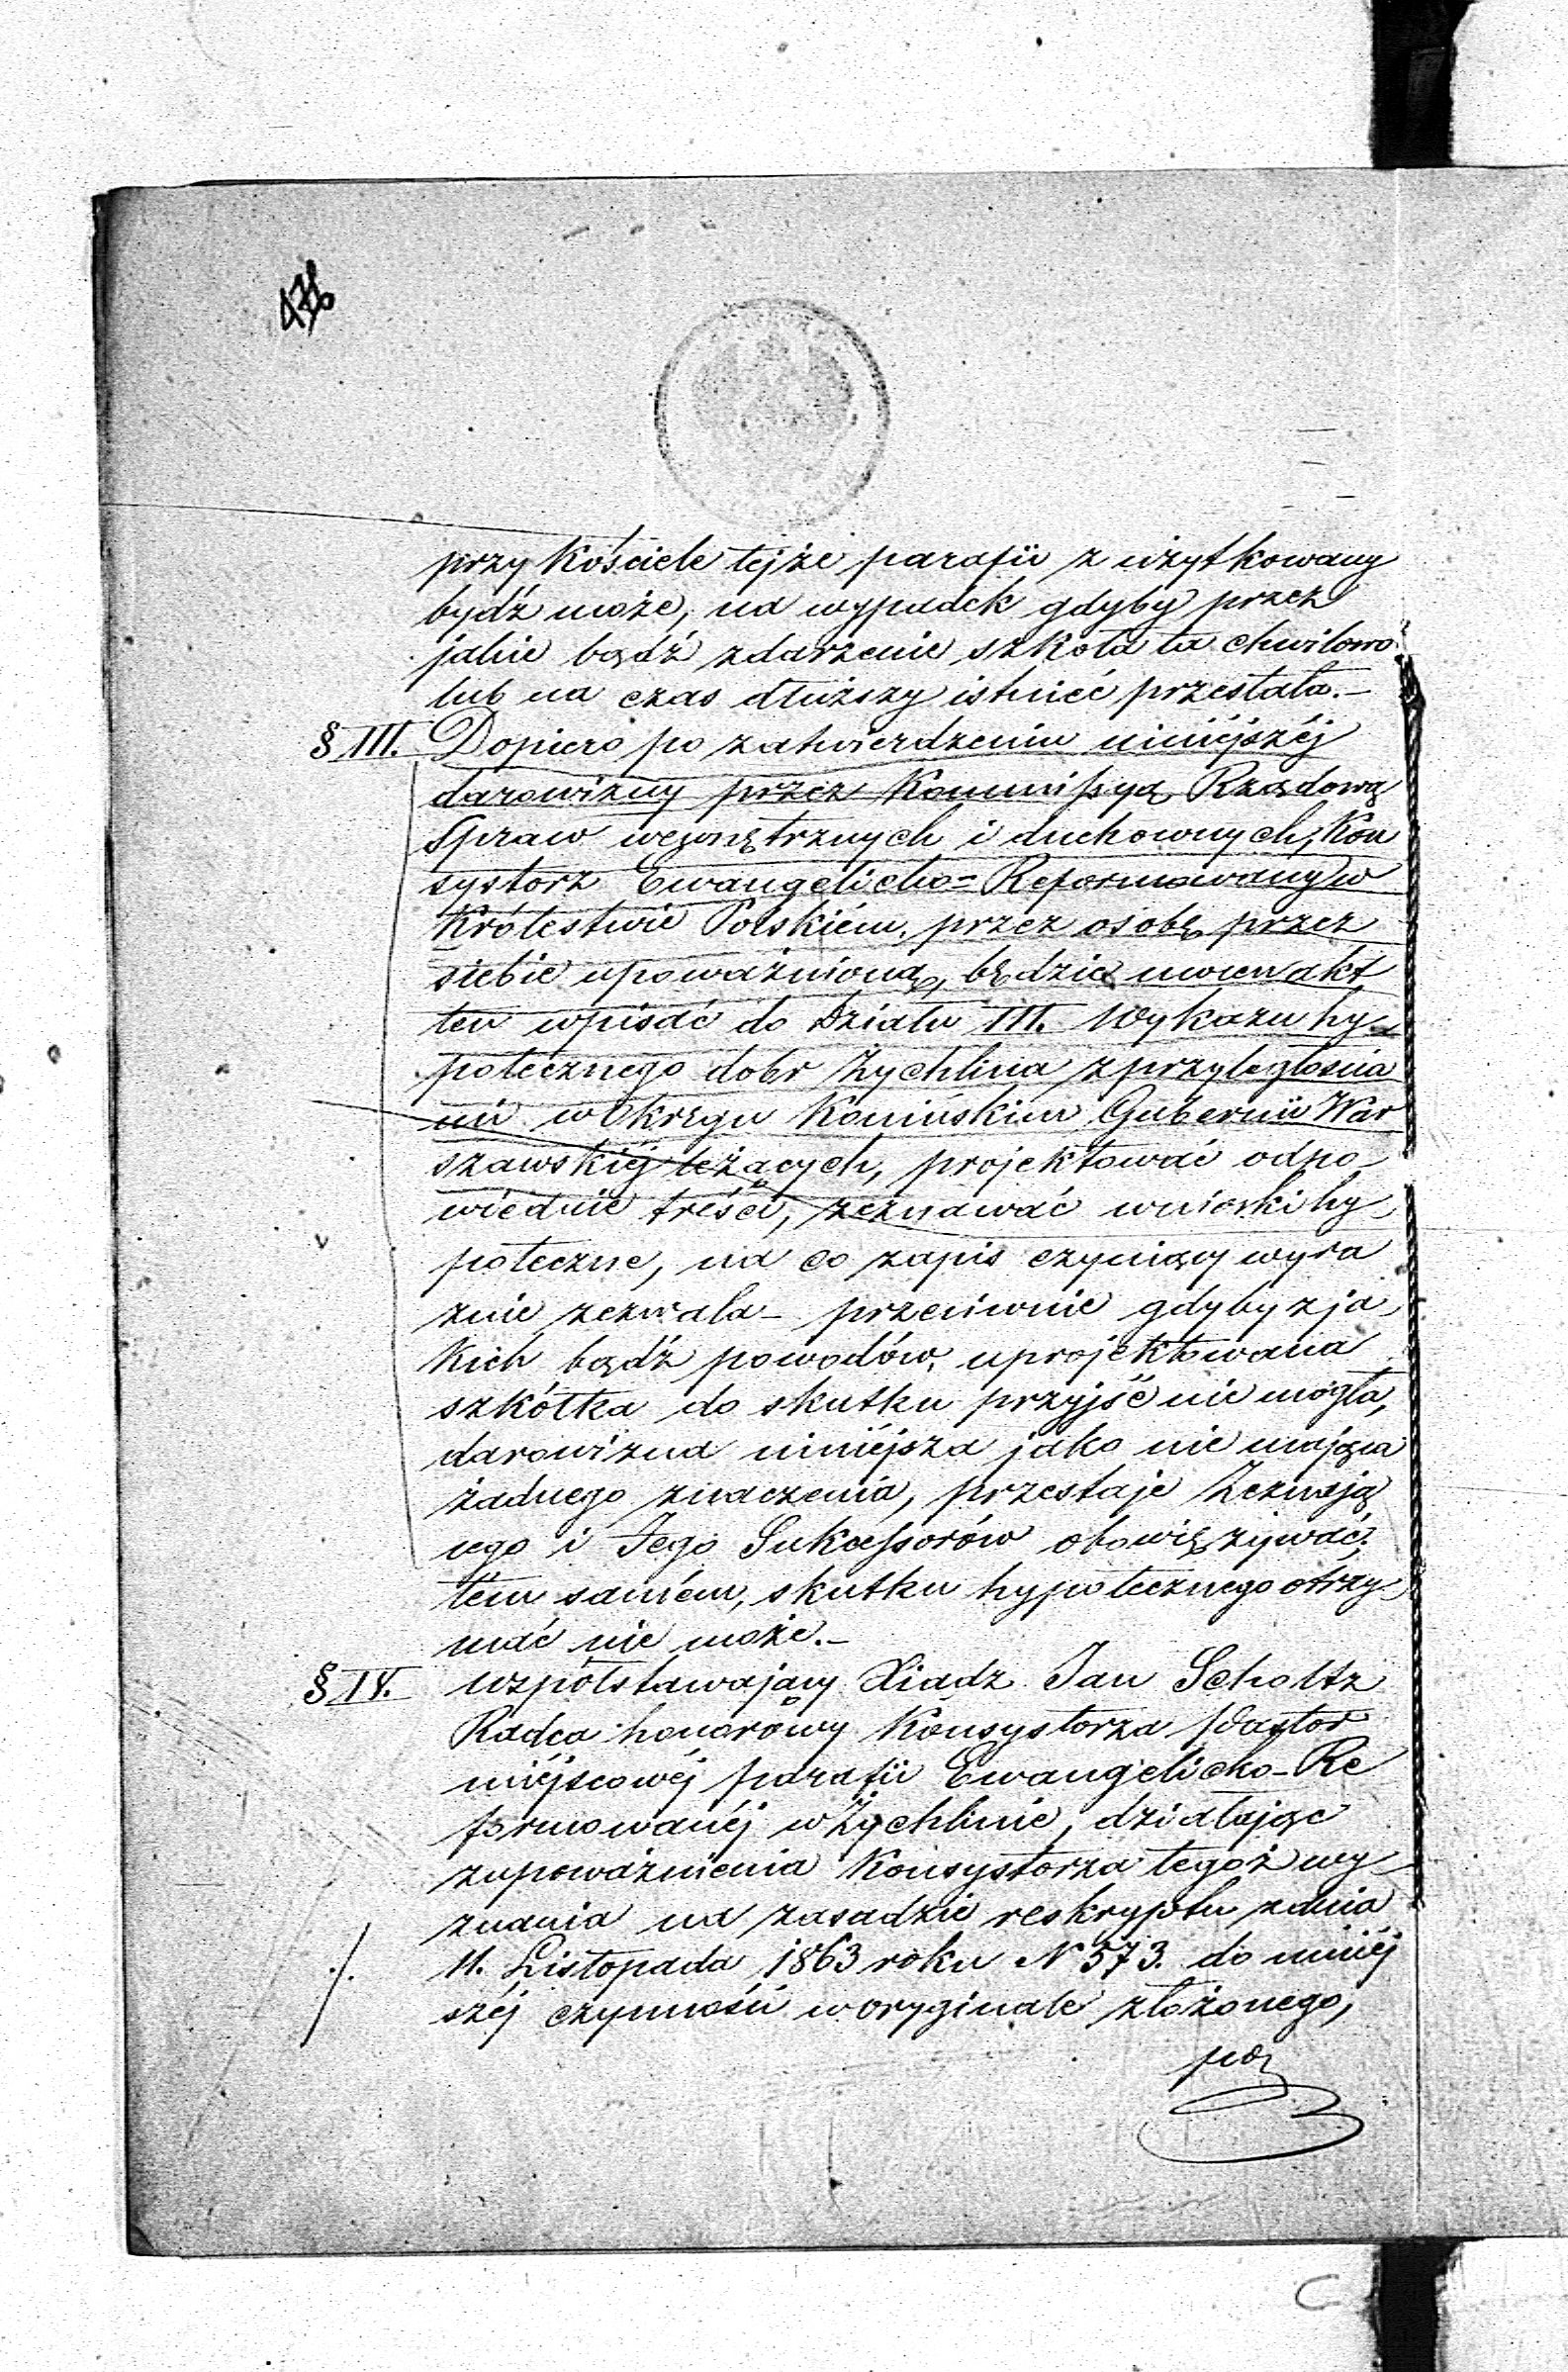 przy Kościele tejże parafii zużytkowany
bydź może, na wypadek gdyby przez
jakie bądź zdarzenie szkoła ta chwilowo
lub na czas dłuższy istnieć przestała.–
§ III. Dopiero po zatwierdzeniu niniéjszéj
darowizny przez Kommissyą Rządową
Spraw wewnętrznych i duchownych, Kon
systorz Ewangelicko=Reformowany w
Królestwie Polskiém, przez osobę przez
siebie upoważnioną, będzie mocen akt
ten wpisać do Działu III. Wykazu hy-
potecznego dobr Żychlina z przyległościa
mi w Okręgu Konińskim Gubernii War
szawskiéj leżących, projektować odpo-
wiednie treści, zeznawać wnioski hy-
poteczne, na co zapis czyniący wyra
znie zezwala – przeciwnie gdyby z ja
kich bądź powodów, uprojektowana
szkółka do skutku przyjść nie mogła,
darowizna niniéjsza jako nie mająca
żadnego znaczenia, przestaje Zeznają
cego i Jego Sukcessorów obowięzywać,
tém samém, skutku hypotecznego otrzy-
mać nie może.–
§ IV. Wspólstawający Xiądz Jan Scholtz
Radca honorowy Konsystorza Pastor
miéjscowéj parafii Ewangelicko-Re
formowanéj w Żychlinie, działając
z upoważnienia Konsystorza tegoż wy-
znania na zasadzie reskryptu z dnia
11. Listopada 1863 roku N 573. do niniéj
széj czynności w oryginale złożonego,